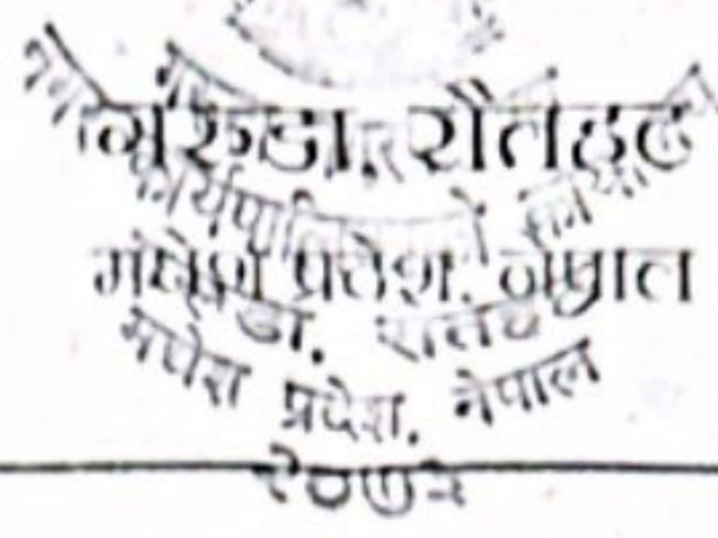 गरुडा, रौतहट
कार्यपालिकाको कार्यालय
मधेश प्रदेश, नेपाल
मधेश प्रदेश, नेपाल
२०७३